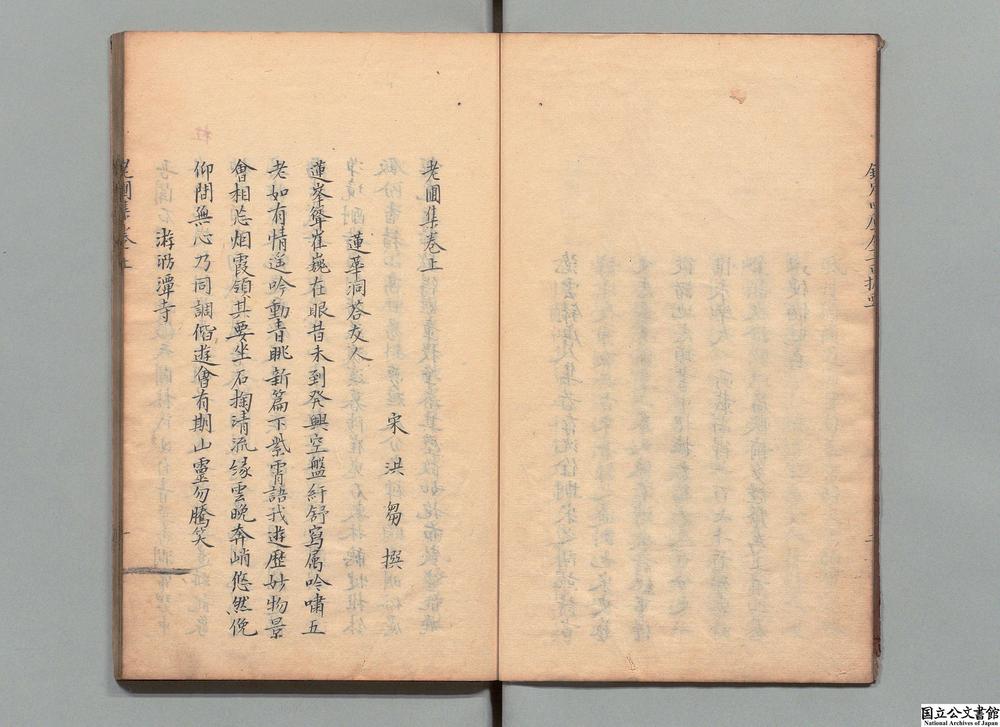 老圃集卷上
宋 洪芻 撰
蓮華洞荅友人
蓮峯聳崔巍在眼昔未到發興空盤紆舒寫属吟嘯五
老如有情遥吟動青眺新篇下紫霄語我遊歷妙物景
會相忘烟霞領其要坐石掬清流緣雲晚奔峭悠然俛
仰間無心乃同調偕遊會有期山靈勿騰笑
游泐潭寺
老圃集卷上
一
国立公文書館
National Archives of Japan